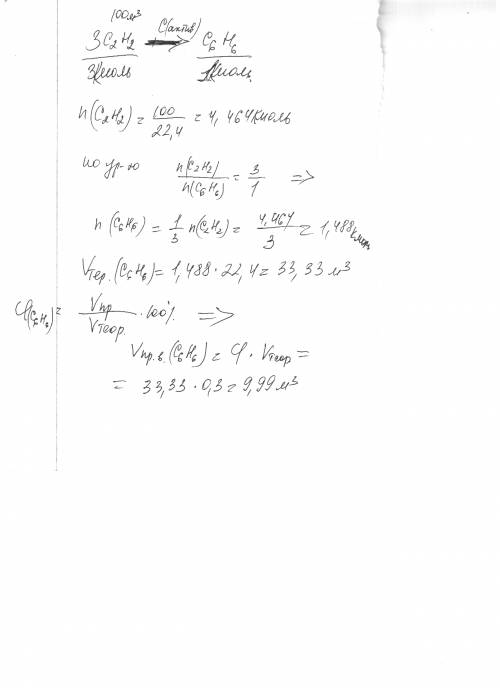 100м³
3C₂H₂ C(актив) → C₆H₆
3Кмоль 1Кмоль
n(C₂H₂) = 100/22,4 = 4,464Кмоль
по ур-ю n(C₂H₂)/n(C₆H₆) = 3/1 =>
n(C₆H₆) = 1/3 n(C₂H₂) = 4,464/3 = 1,488Кмоль
Vтер.(C₆H₆) = 1,488·22,4 = 33,33 м³
φ(C₆H₆) = Vпр/Vтеор. ·100% =>
Vпр.в.(C₆H₆) = φ · Vтеор =
= 33,33·0,3 = 9,99 м³